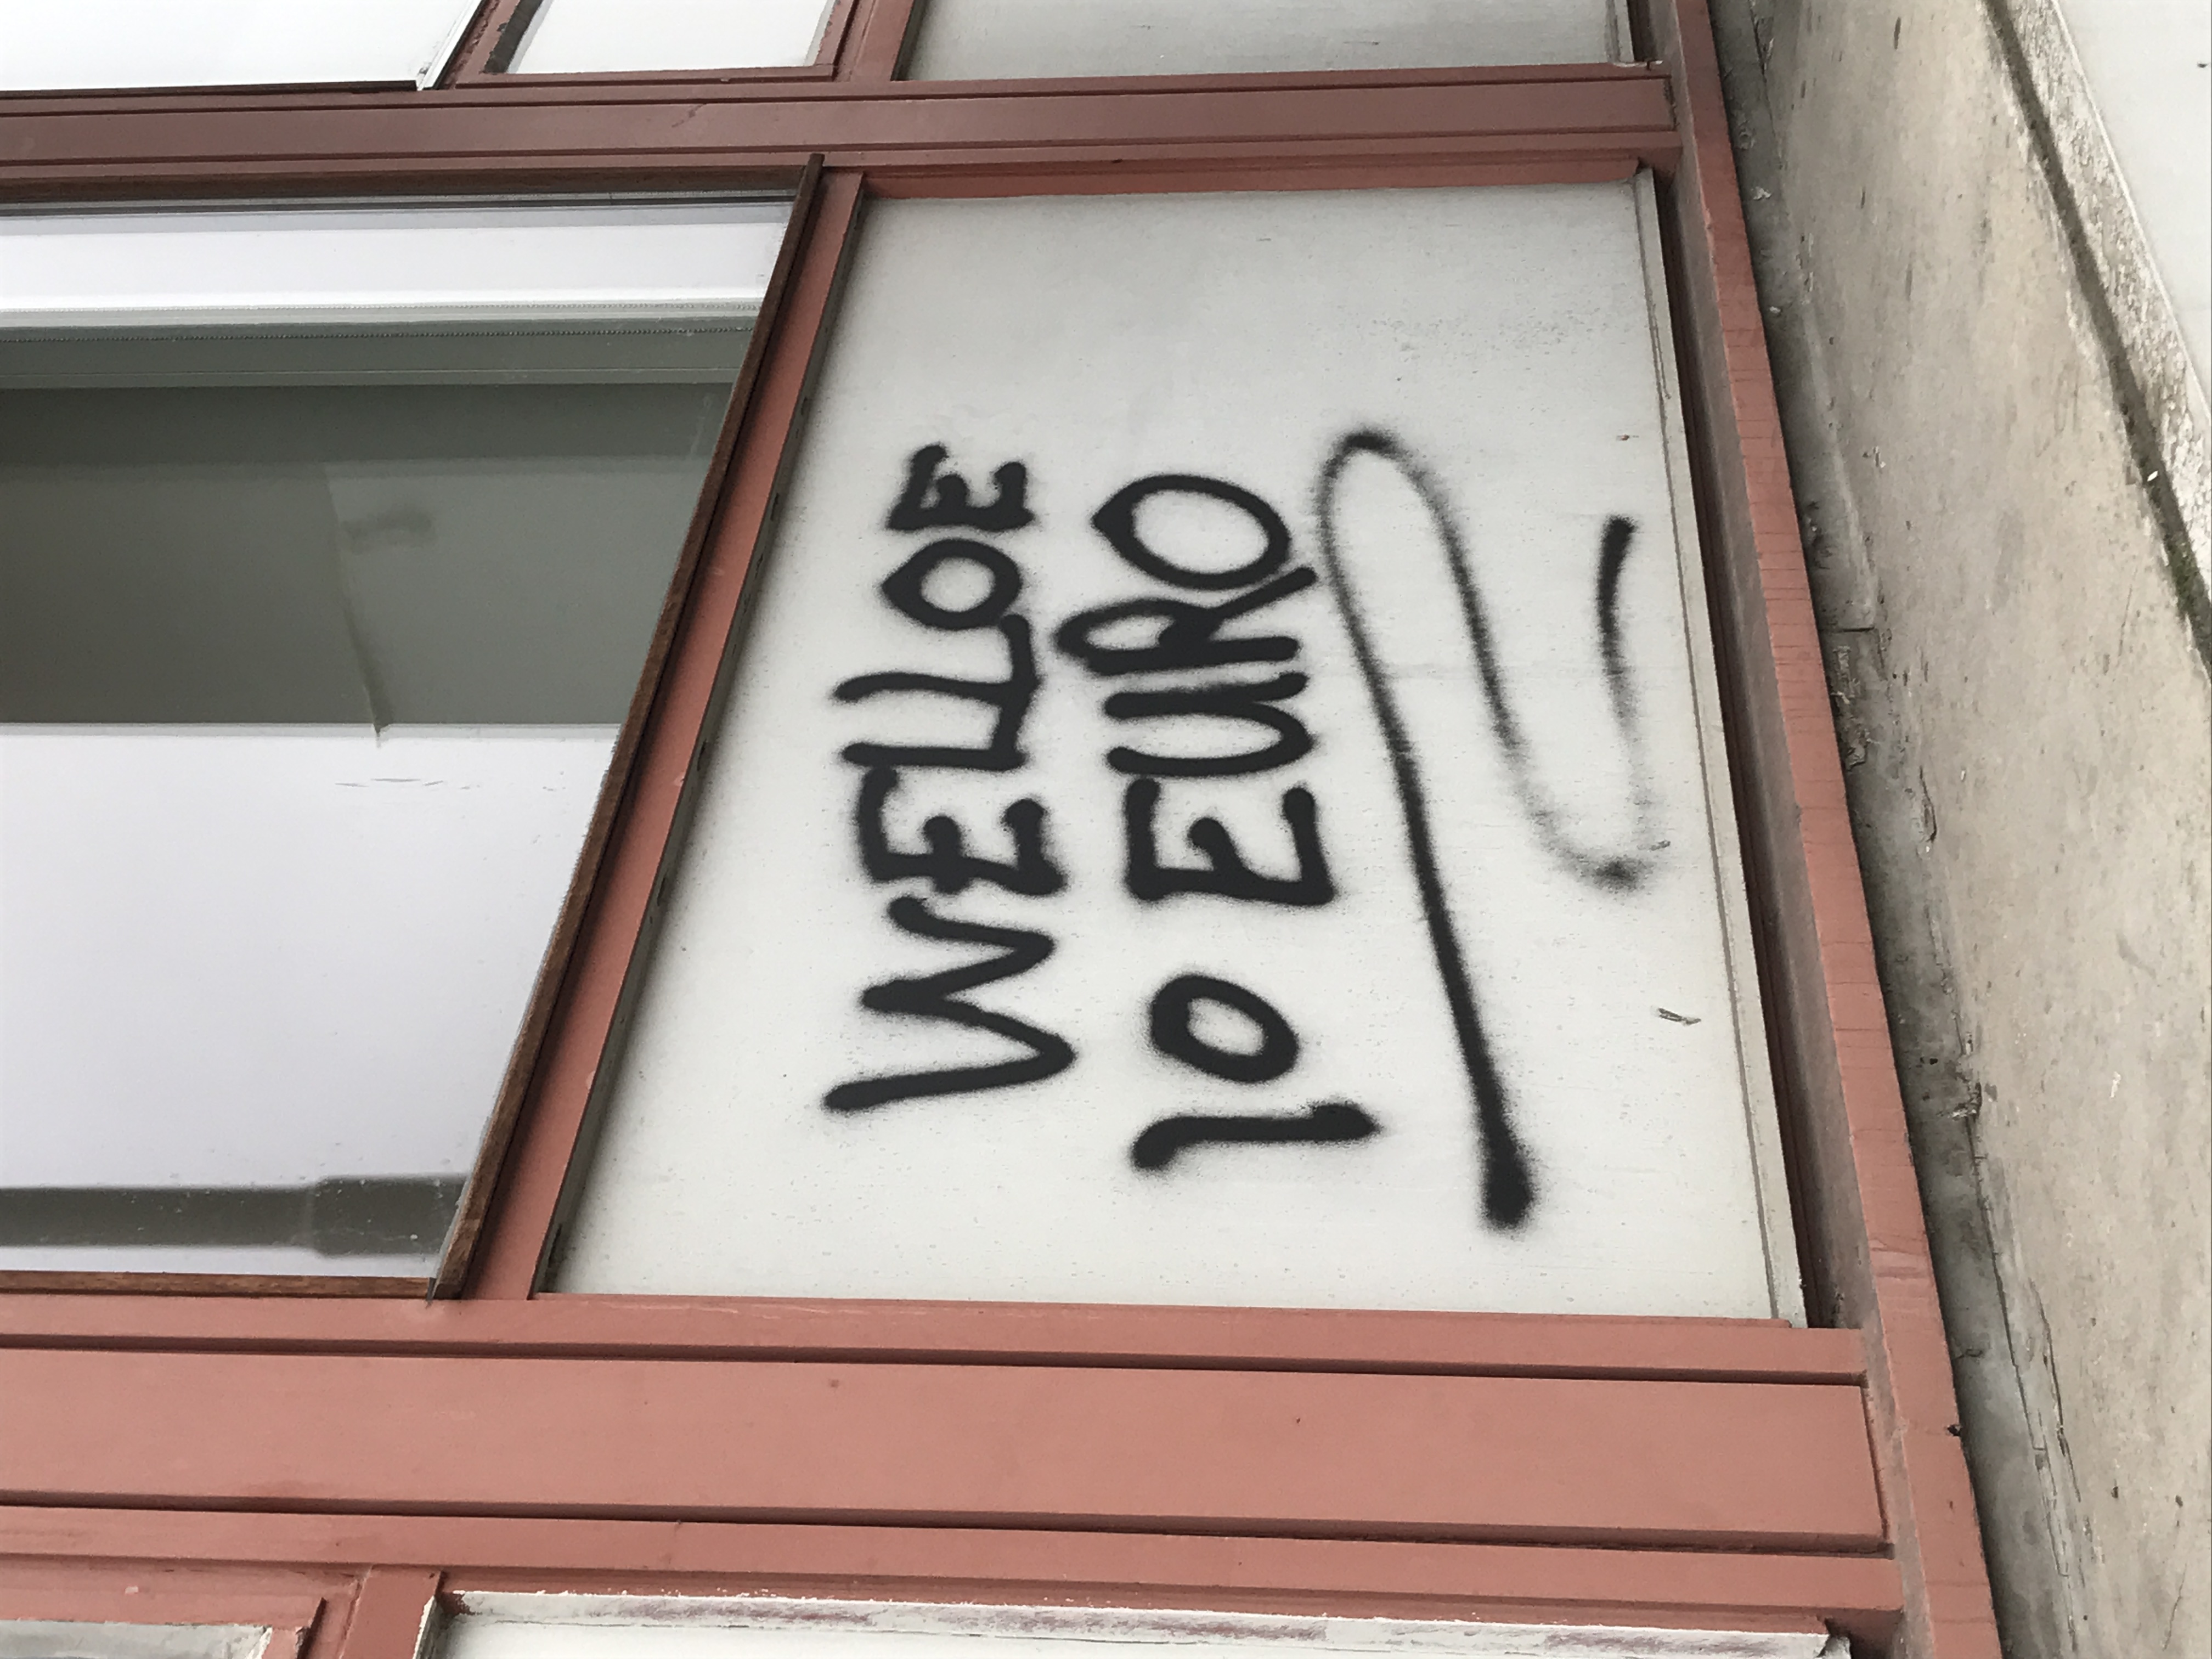 WELLOE
10 EURO